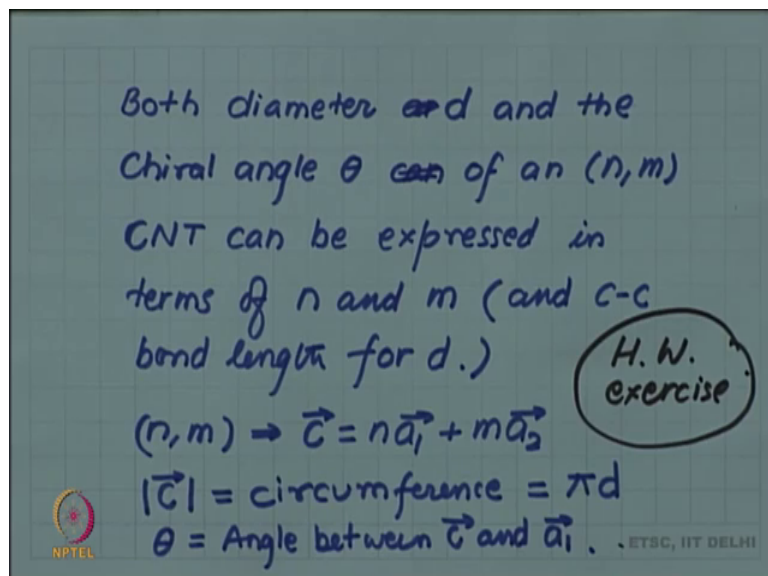 Both diameter d and the
Chiral angle θ of an (n,m)
CNT can be expressed in
terms of n and m (and C-C
bond length for d.)
H.W.
exercise
(n,m) ⇒ C⃗ = na⃗₁ + ma⃗₂
|C⃗| = circumference = πd
θ = Angle between C⃗ and a⃗₁.
NPTEL
ETSC, IIT DELHI